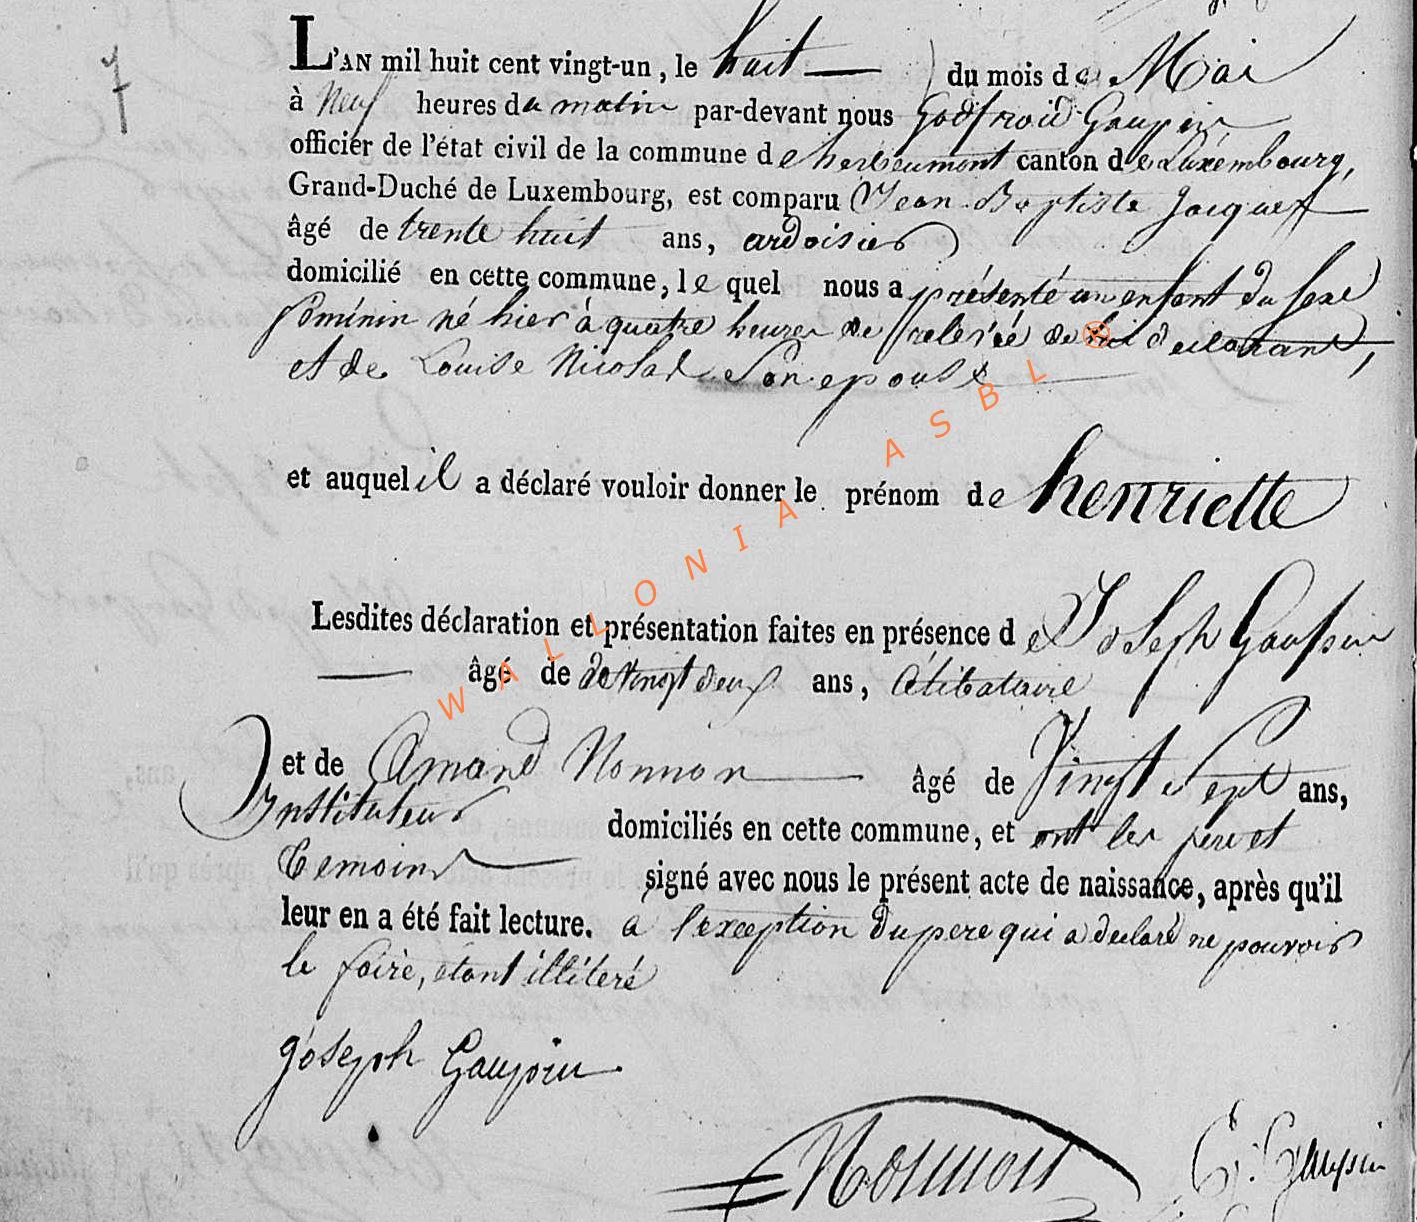 7
L'AN mil huit cent vingt-un, le huit — du mois de Mai
à Neuf heures du matin par-devant nous Godfroid Gaupin
officier de l'état civil de la commune de herbeumont canton de Luxembourg,
Grand-Duché de Luxembourg, est comparu Jean Baptiste Jacques
âgé de trente huit ans, ardoisier
domicilié en cette commune, le quel nous a présenté un enfant du sexe
féminin né hier à quatre heures de relevée de lui déclarant,
et de Louise Nicolas Son epouse
et auquel il a déclaré vouloir donner le prénom de henriette
Lesdites déclaration et présentation faites en présence de Joseph Gaupin
— âgé de de vingt deux ans, Célibataire
et de Amand Nonnon — âgé de Vingt Sept ans,
Instituteur domiciliés en cette commune, et ont les père et
témoins signé avec nous le présent acte de naissance, après qu'il
leur en a été fait lecture. à l'exception du pere qui a declaré ne pouvoir
le faire, étant illiteré
Joseph Gaupin
Nonnon G. Gaupin
WALLONIA ASBL ®